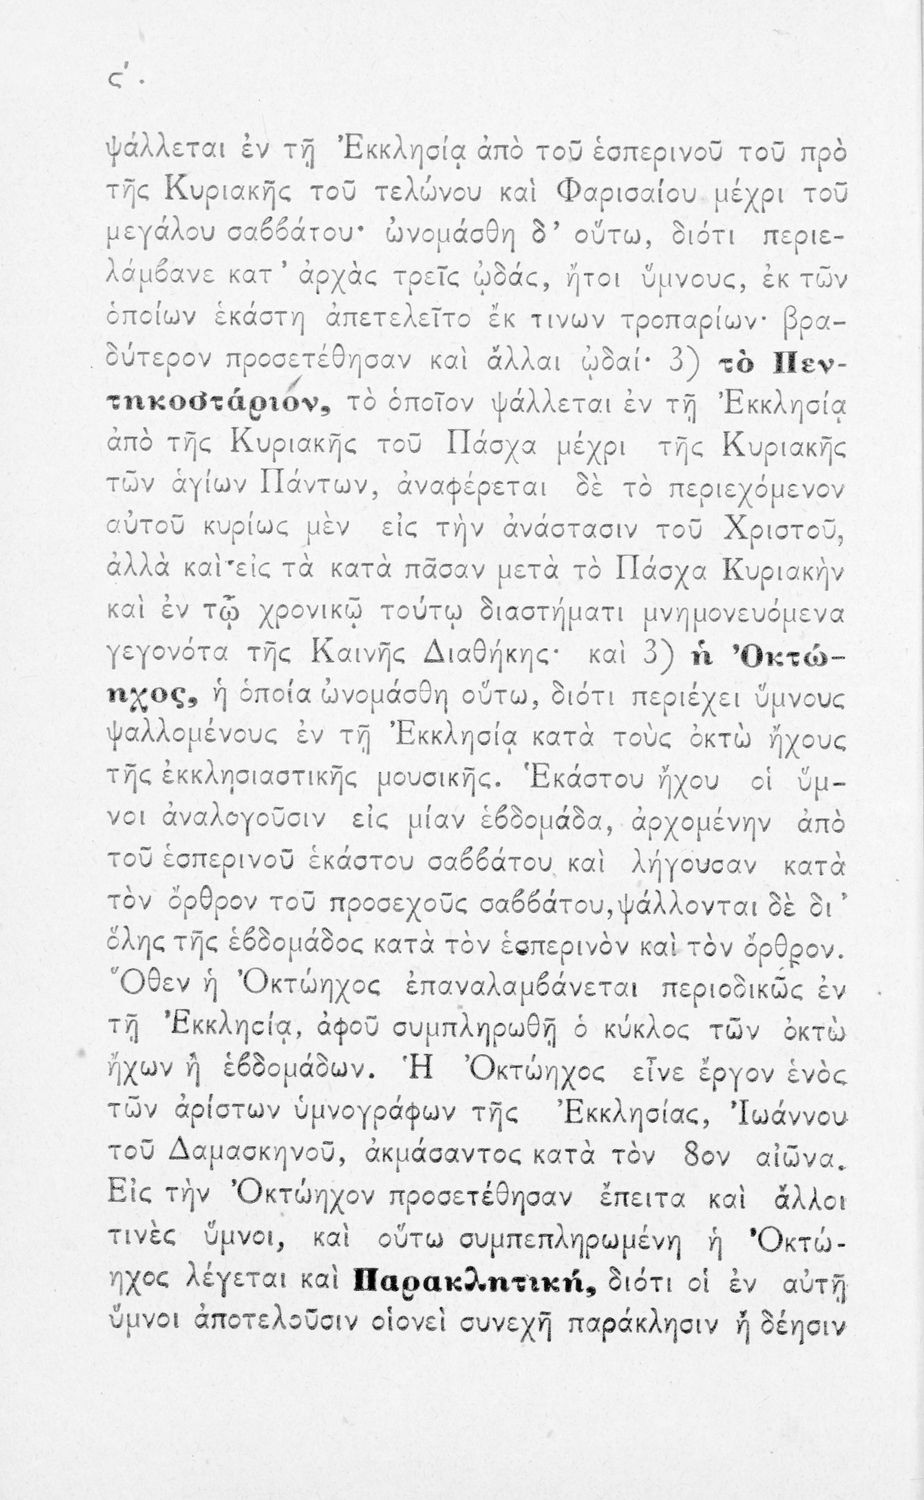 ϛ΄.
ψάλλεται ἐν τῇ Ἐκκλησίᾳ ἀπὸ τοῦ ἑσπερινοῦ τοῦ πρὸ
τῆς Κυριακῆς τοῦ τελώνου καὶ Φαρισαίου μέχρι τοῦ
μεγάλου σαββάτου· ὠνομάσθη δ’ οὕτω, διότι περιε-
λάμβανε κατ’ ἀρχὰς τρεῖς ᾠδάς, ἤτοι ὕμνους, ἐκ τῶν
ὁποίων ἑκάστη ἀπετελεῖτο ἔκ τινων τροπαρίων· βρα-
δύτερον προσετέθησαν καὶ ἄλλαι ᾠδαί· 3) τὸ Πεν-
τηκοστάριον, τὸ ὁποῖον ψάλλεται ἐν τῇ Ἐκκλησίᾳ
ἀπὸ τῆς Κυριακῆς τοῦ Πάσχα μέχρι τῆς Κυριακῆς
τῶν ἁγίων Πάντων, ἀναφέρεται δὲ τὸ περιεχόμενον
αὐτοῦ κυρίως μὲν εἰς τὴν ἀνάστασιν τοῦ Χριστοῦ,
ἀλλὰ καὶ εἰς τὰ κατὰ πᾶσαν μετὰ τὸ Πάσχα Κυριακὴν
καὶ ἐν τῷ χρονικῷ τούτῳ διαστήματι μνημονευόμενα
γεγονότα τῆς Καινῆς Διαθήκης· καὶ 3) ἡ Ὀκτώ-
ηχος, ἡ ὁποία ὠνομάσθη οὕτω, διότι περιέχει ὕμνους
ψαλλομένους ἐν τῇ Ἐκκλησίᾳ κατὰ τοὺς ὀκτὼ ἤχους
τῆς ἐκκλησιαστικῆς μουσικῆς. Ἑκάστου ἤχου οἱ ὕμ-
νοι ἀναλογοῦσιν εἰς μίαν ἑβδομάδα, ἀρχομένην ἀπὸ
τοῦ ἑσπερινοῦ ἑκάστου σαββάτου καὶ λήγουσαν κατὰ
τὸν ὄρθρον τοῦ προσεχοῦς σαββάτου, ψάλλονται δὲ δι’
ὅλης τῆς ἑβδομάδος κατὰ τὸν ἑσπερινὸν καὶ τὸν ὄρθρον.
Ὅθεν ἡ Ὀκτώηχος ἐπαναλαμβάνεται περιοδικῶς ἐν
τῇ Ἐκκλησίᾳ, ἀφοῦ συμπληρωθῇ ὁ κύκλος τῶν ὀκτὼ
ἤχων ἢ ἑβδομάδων. Ἡ Ὀκτώηχος εἶνε ἔργον ἑνὸς
τῶν ἀρίστων ὑμνογράφων τῆς Ἐκκλησίας, Ἰωάννου
τοῦ Δαμασκηνοῦ, ἀκμάσαντος κατὰ τὸν 8ον αἰῶνα.
Εἰς τὴν Ὀκτώηχον προσετέθησαν ἔπειτα καὶ ἄλλοι
τινὲς ὕμνοι, καὶ οὕτω συμπεπληρωμένη ἡ Ὀκτώ-
ηχος λέγεται καὶ Παρακλητική, διότι οἱ ἐν αὐτῇ
ὕμνοι ἀποτελοῦσιν οἱονεὶ συνεχῆ παράκλησιν ἢ δέησιν